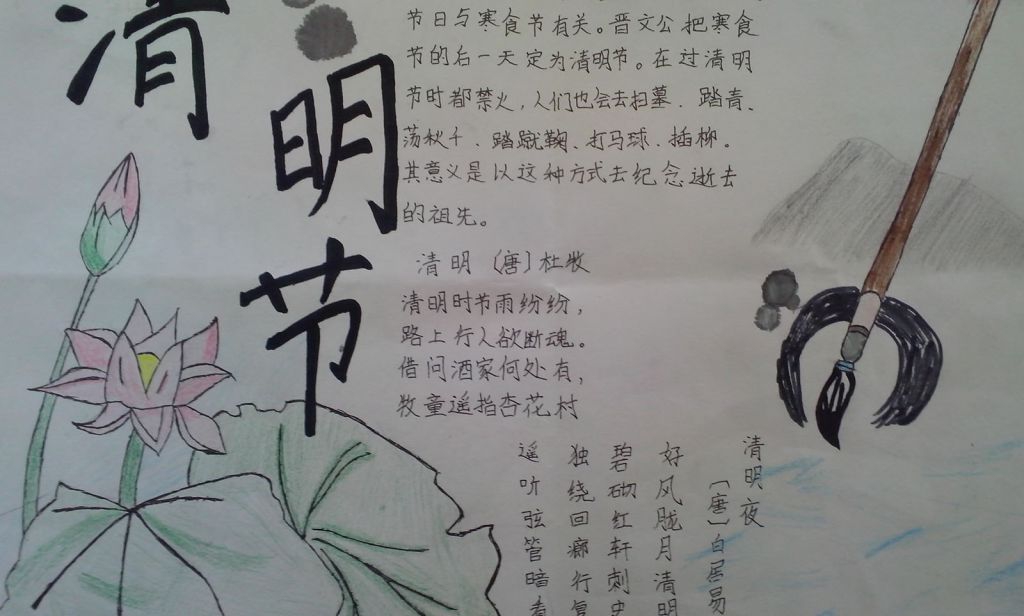 清明节
节日与寒食节有关。晋文公把寒食
节的后一天定为清明节。在过清明
节时都禁火,人们也会去扫墓、踏青、
荡秋千、踏蹴鞠、打马球、插柳。
其意义是以这种方式去纪念逝去
的祖先。
清明〔唐〕杜牧
清明时节雨纷纷,
路上行人欲断魂。
借问酒家何处有,
牧童遥指杏花村
清明夜
〔唐〕白居易
好风胧月清明
碧砌红轩刺史
独绕回廊行复
遥听弦管暗看